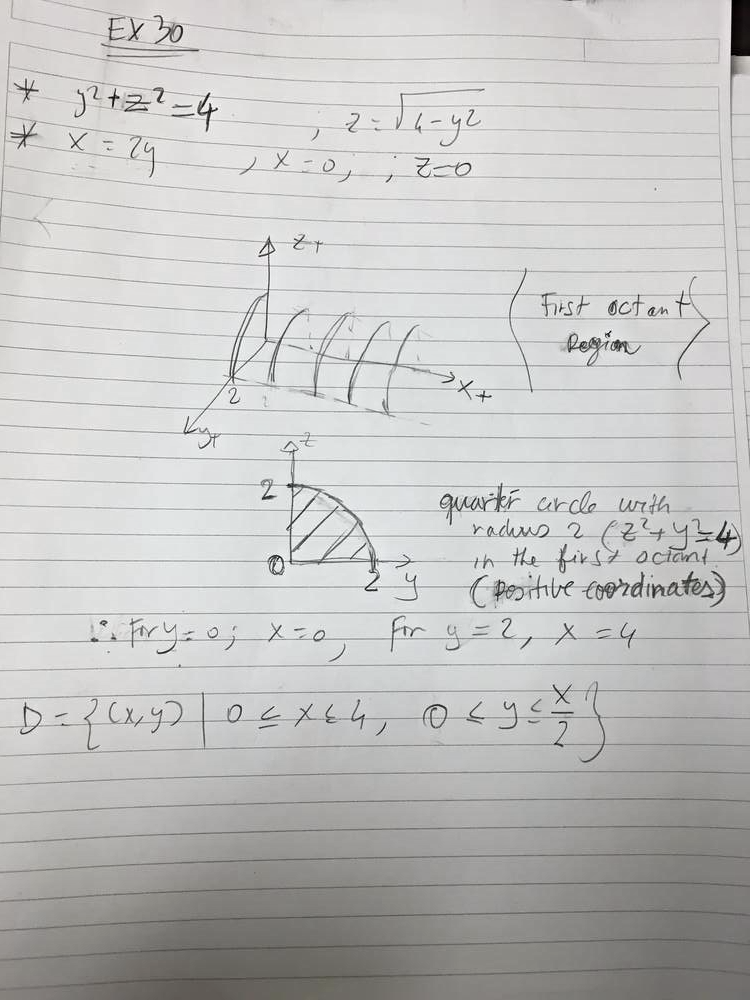 EX 30
* y²+z²=4 ; z=√4-y2
* x = 2y , x=0; ; z=0
z+
First octant
Region
x+
2
y+
z
2
quarter circle with
radius 2 (z²+y²=4)
in the first octant
(positive coordinates)
0
2
y
∴ For y=0; x=0, For y=2, x=4
D = {(x,y) | 0 ≤ x ≤ 4, 0 ≤ y ≤ x/2}